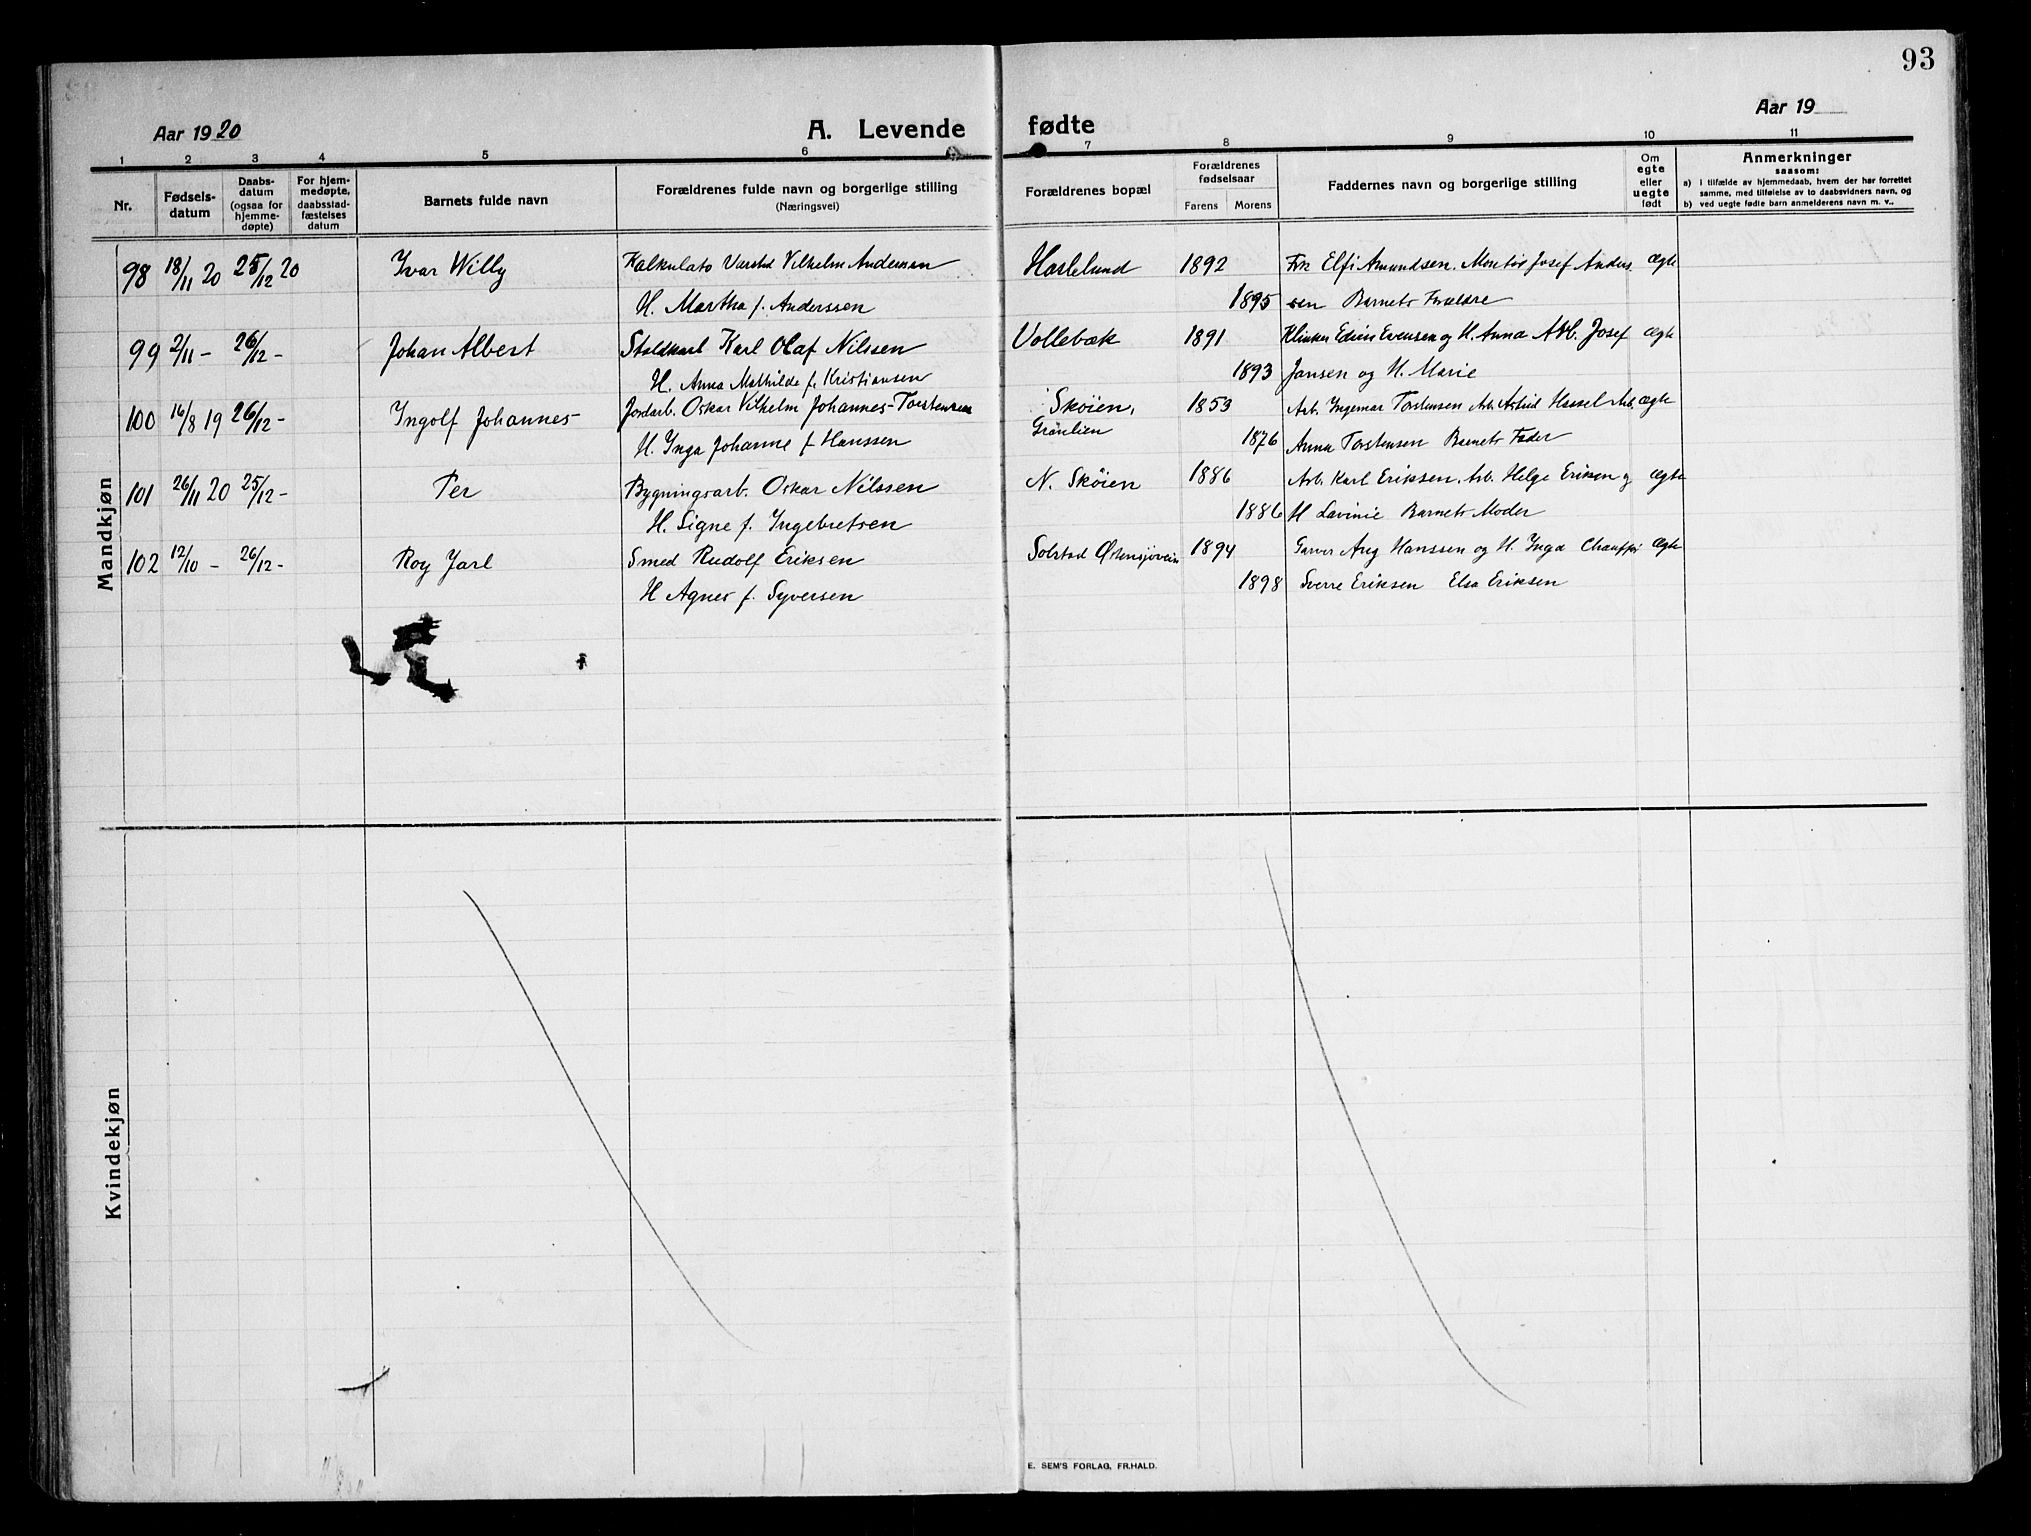 93
Aar 1920
A. Levende fødte
Aar 19
1 2 3 4 5 6 7 8 9 10 11
Nr.
Fødsels-
datum
Daabs-
datum
(ogsaa for
hjemme-
døpte)
For hjem-
medøpte,
daabsstad-
fæstelses
datum
Barnets fulde navn
Forældrenes fulde navn og borgerlige stilling
(Næringsvei)
Forældrenes bopæl
Forældrenes
fødselsaar
Farens Morens
Faddernes navn og borgerlige stilling
Om
egte
eller
uegte
født
Anmerkninger
saasom:
a) I tilfælde av hjemmedaab, hvem der har forrettet
samme, med tilføielse av to daabsvidners navn, og
b) ved uegte fødte barn anmelderens navn m. v..
Mandkjøn
98 18/11 20 25/12 20 Ivar Willy Kalkulatø Varstad Vilhelm Andersen Haslelund 1892 Frk Elfi Amundsen. Montør Josef Anders ægte
H. Martha f. Anderssen 1895 sen Barnets Forældre
99 2/11 - 26/12 - Johan Albert Staldkarl Karl Olaf Nilssen Vollebæk 1891 Edvin Evensen og H. Anna Arb. Josef ægte
H. Anna Mathilde f. Kristiansen 1893 Jansen og H. Marie
100 16/8 19 26/12 - Ingolf Johannes Jordarb. Oskar Vilhelm Johannes Torstensen Skøien, 1853 Arb. Ingemar Torstensen Arb. Astrid Hassel Arb. ægte
H. Inga Johanne f Hanssen Grønlien 1876 Anna Torstensen Barnets Fader
101 26/11 20 25/12 - Per Bygningsarb. Oskar Nilssen N. Skøien 1886 Arb. Karl Eriksen. Arb. Helge Eriksen og ægte
H. Signe f. Ingebretsen 1886 H Lavinie Barnets Moder
102 12/10 - 26/12 - Roy Jarl Smed Rudolf Eriksen Solstad Østensjøvein 1894 Garver Aug Hanssen og H. Inga Chauffør ægte
H Agnes f. Syversen 1898 Sverre Eriksen Elsa Eriksen
Kvindekjøn
E. SEM'S FORLAG, FR.HALD.